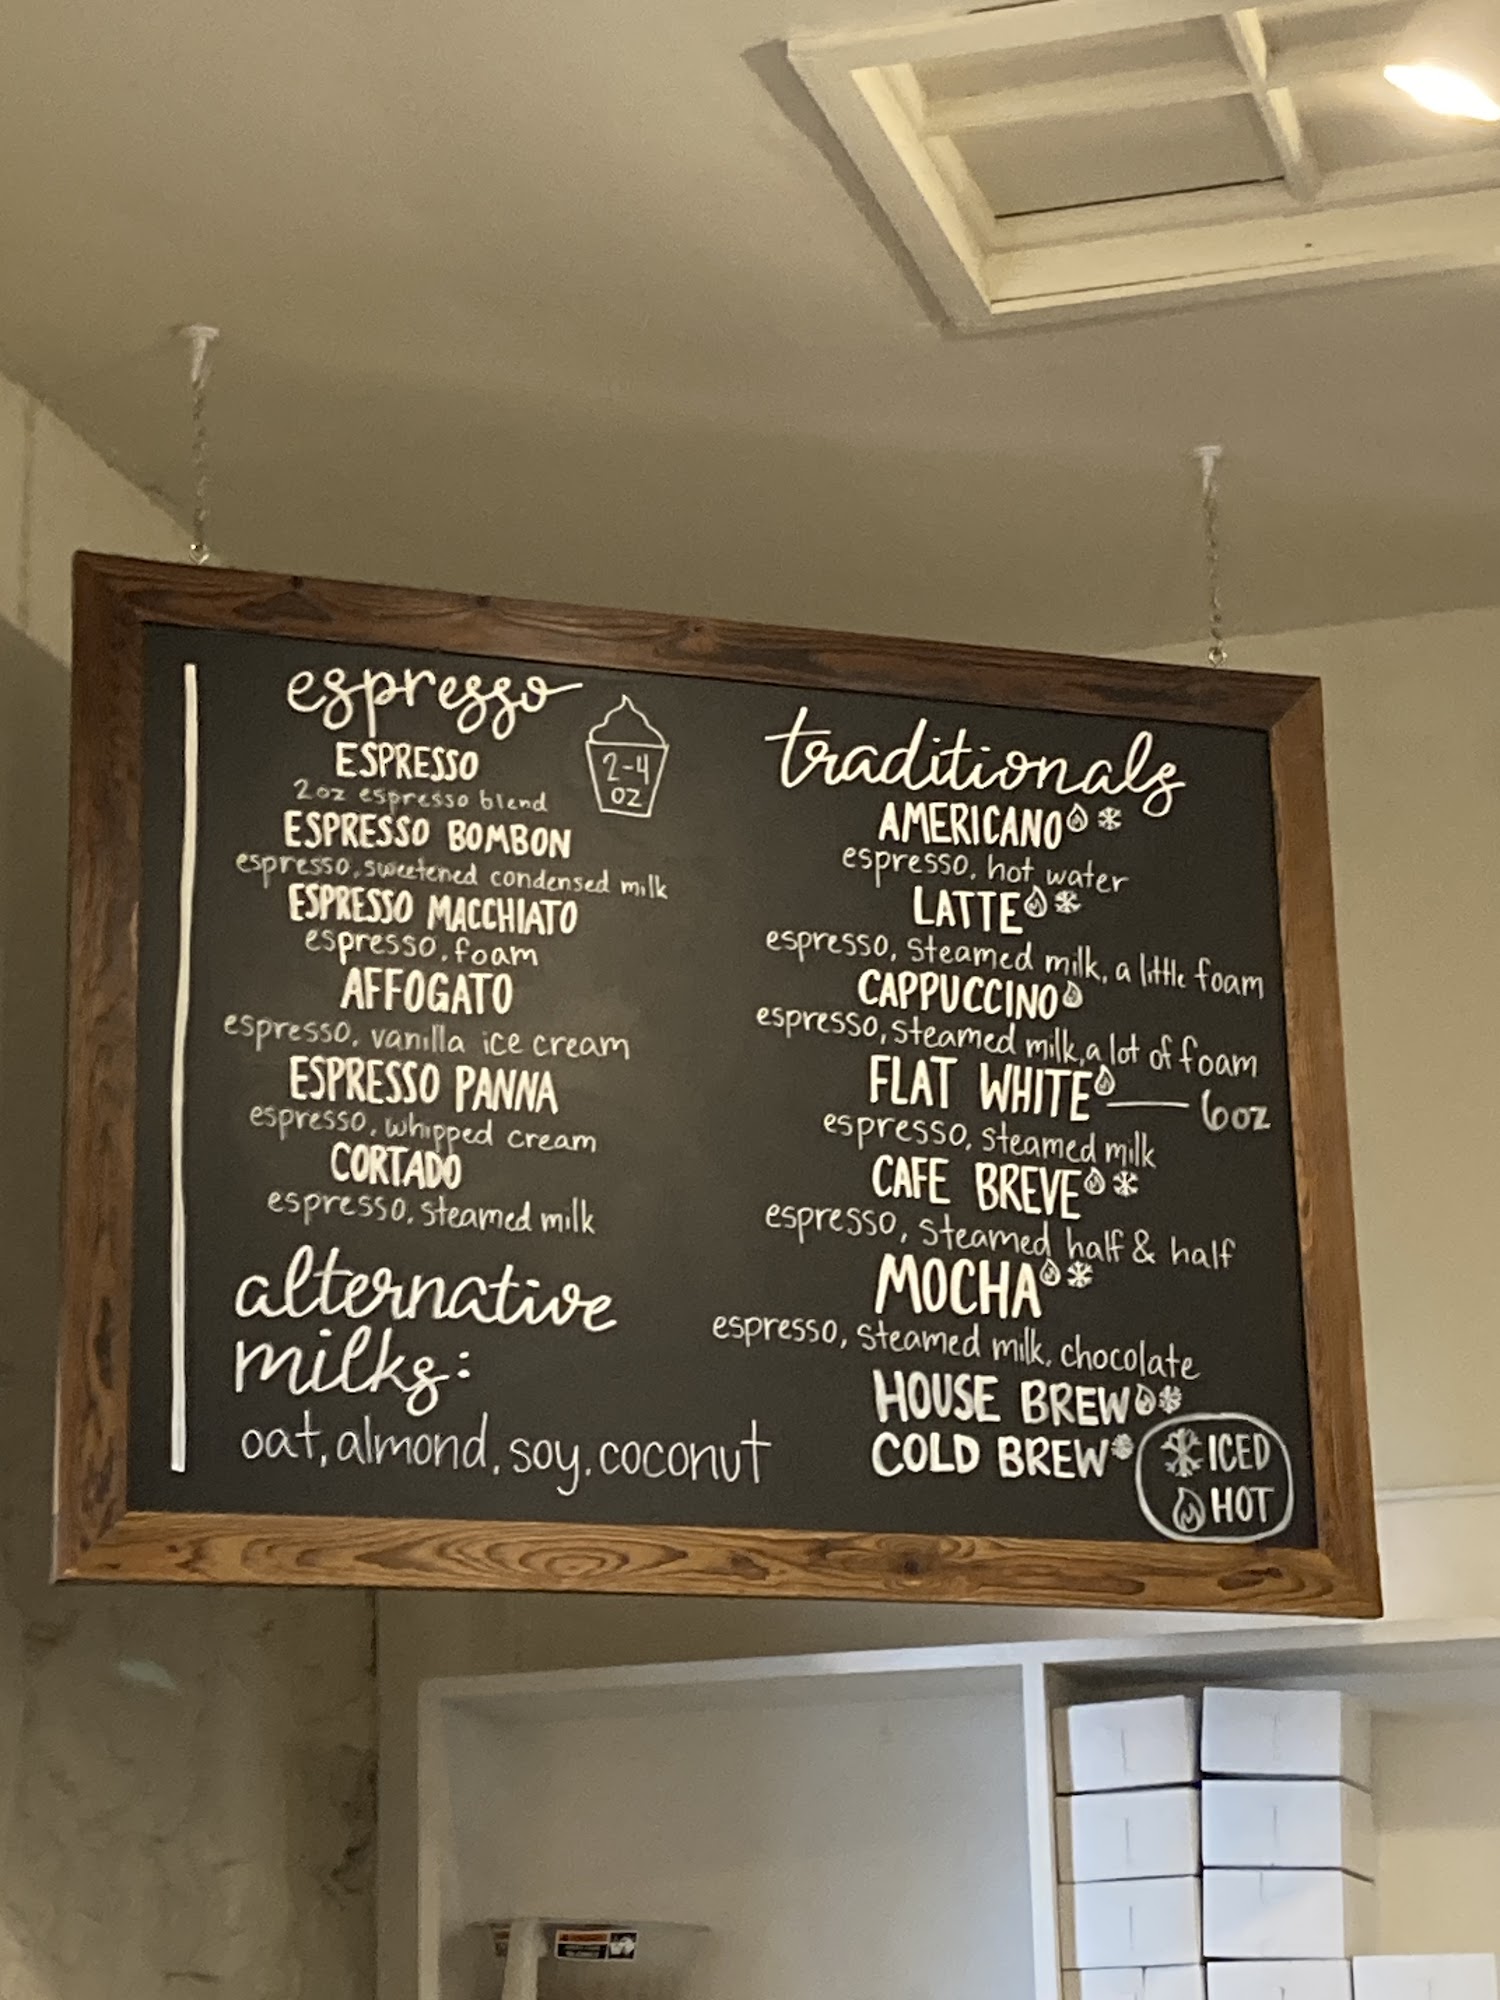 espresso
2-4
oz
ESPRESSO
2oz espresso blend
ESPRESSO BOMBON
espresso, sweetened condensed milk
ESPRESSO MACCHIATO
espresso, foam
AFFOGATO
espresso, vanilla ice cream
ESPRESSO PANNA
espresso, whipped cream
CORTADO
espresso, steamed milk
alternative
milks:
oat, almond, soy, coconut
traditionals
AMERICANO
espresso, hot water
LATTE
espresso, steamed milk, a little foam
CAPPUCCINO
espresso, steamed milk, a lot of foam
FLAT WHITE — 6oz
espresso, steamed milk
CAFE BREVE
espresso, steamed half & half
MOCHA
espresso, steamed milk, chocolate
HOUSE BREW
COLD BREW
ICED
HOT